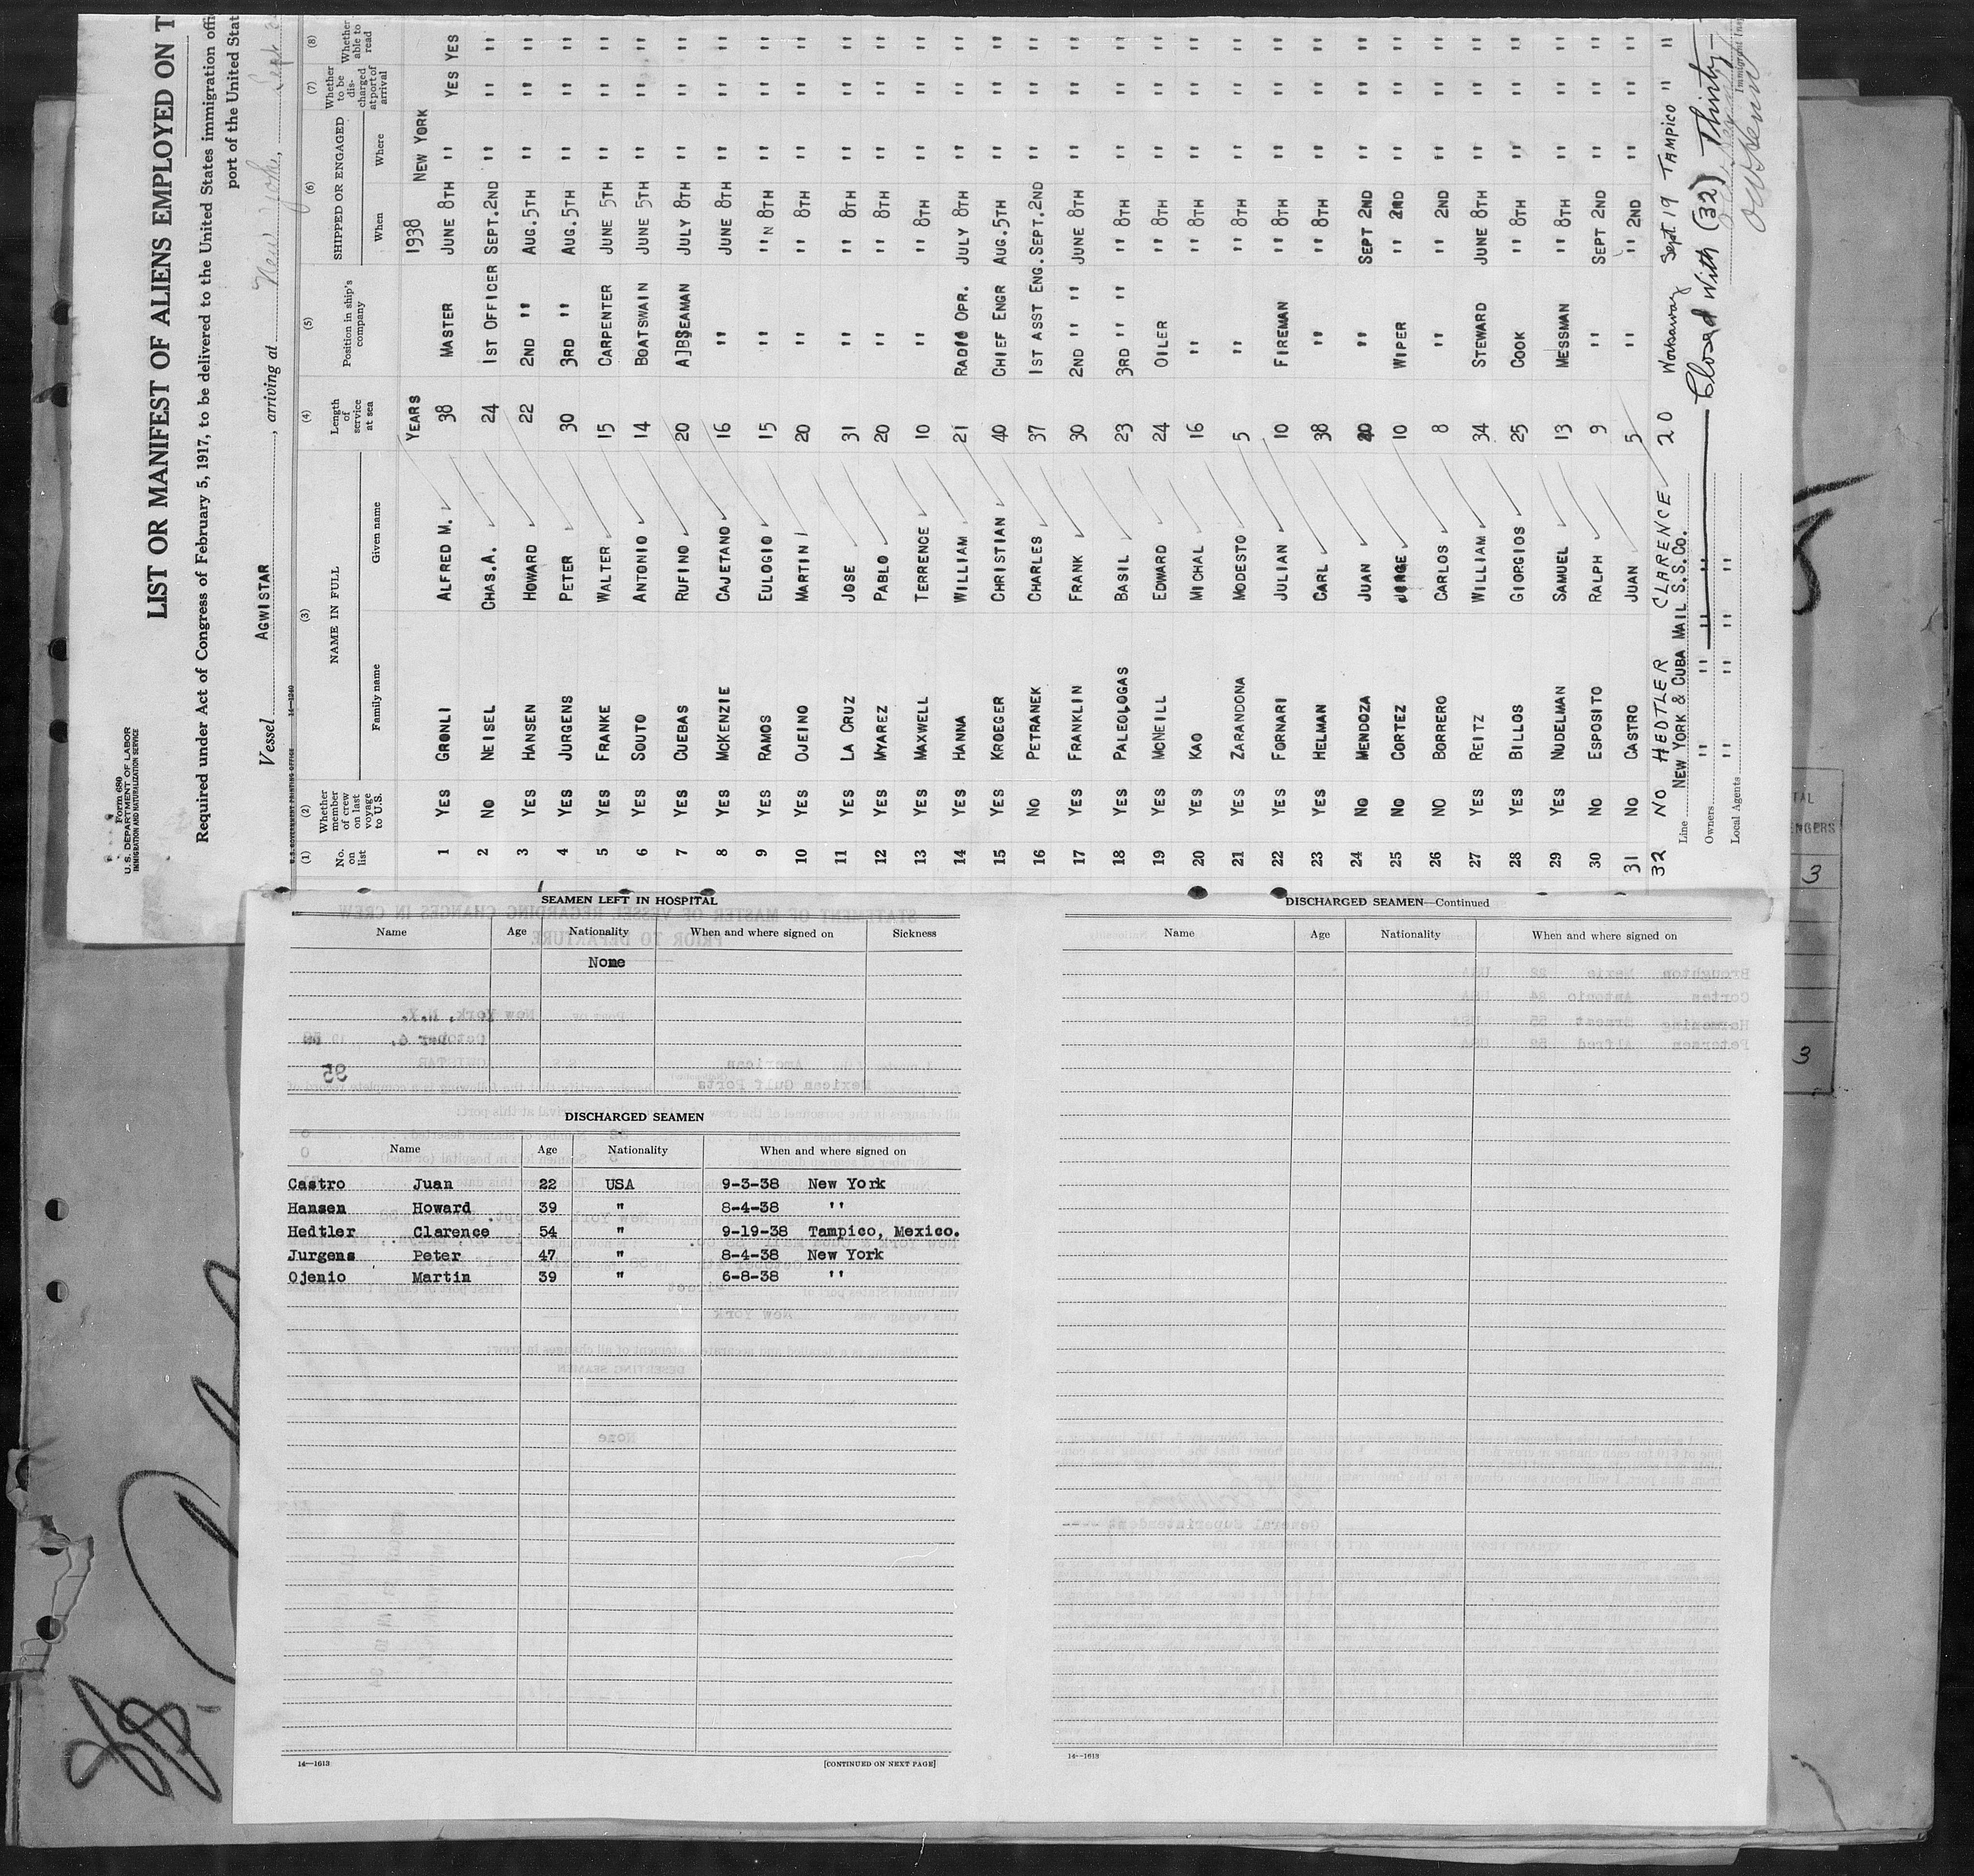 Form 680
U. S. DEPARTMENT OF LABOR
IMMIGRATION AND NATURALIZATION SERVICE
LIST OR MANIFEST OF ALIENS EMPLOYED ON T
Required under Act of Congress of February 5, 1917, to be delivered to the United States immigration offi
port of the United Stat
Vessel AGWISTAR, arriving at New York, Sept 2
U. S. GOVERNMENT PRINTING OFFICE 14—1240
(1) (2) (3) (4) (5) (6) (7) (8)
No. on list Whether member of crew on last voyage to U.S. NAME IN FULL Length of service at sea Position in ship's company SHIPPED OR ENGAGED Whether to be discharged at port of arrival Whether able to read
Family name Given name When Where
YEARS 1938 NEW YORK
1 YES GRONLI ALFRED M. 38 MASTER JUNE 8TH " YES YES
2 NO NEISEL CHAS.A. 24 1ST OFFICER SEPT.2ND " " "
3 YES HANSEN HOWARD 22 2ND " AUG.5TH " " "
4 YES JURGENS PETER 30 3RD " AUG.5TH " " "
5 YES FRANKE WALTER 15 CARPENTER JUNE 5TH " " "
6 YES SOUTO ANTONIO 14 BOATSWAIN JUNE 5TH " " "
7 YES CUEBAS RUFINO 20 A]BSEAMAN JULY 8TH " " "
8 YES MCKENZIE CAJETANO 16 " JUNE 8TH " " "
9 YES RAMOS EULOGIO 15 " "N 8TH " " "
10 YES OJEINO MARTIN 20 " " 8TH " " "
11 YES LA CRUZ JOSE 31 " " 8TH " " "
12 YES MYAREZ PABLO 20 " " 8TH " " "
13 YES MAXWELL TERRENCE 10 " " 8TH " " "
14 YES HANNA WILLIAM 21 RADIO OPR. JULY 8TH " " "
15 YES KROEGER CHRISTIAN 40 CHIEF ENGR AUG.5TH " " "
16 NO PETRANEK CHARLES 37 1ST ASST ENG. SEPT.2ND " " "
17 YES FRANKLIN FRANK 30 2ND " " JUNE 8TH " " "
18 YES PALEOLOGAS BASIL 23 3RD " " " 8TH " " "
19 YES MCNEILL EDWARD 24 OILER " 8TH " " "
20 YES KAO MICHAL 16 " " 8TH " " "
21 YES ZARANDONA MODESTO 5 " " 8TH " " "
22 YES FORNARI JULIAN 10 FIREMAN " 8TH " " "
23 YES HELMAN CARL 38 " " 8TH " " "
24 NO MENDOZA JUAN 20 " SEPT 2ND " " "
25 NO CORTEZ JORGE 10 WIPER " 2ND " " "
26 NO BORRERO CARLOS 8 " " 2ND " " "
27 YES REITZ WILLIAM 34 STEWARD JUNE 8TH " " "
28 YES BILLOS GIORGIOS 25 COOK " 8TH " " "
29 YES NUDELMAN SAMUEL 13 MESSMAN " 8TH " " "
30 NO ESPOSITO RALPH 9 " SEPT 2ND " " "
31 NO CASTRO JUAN 5 " " 2ND " " "
32 NO HEDTLER CLARENCE 20 Workaway Sept 19 TAMPICO " "
Line NEW YORK & CUBA MAIL S.S.CO.
Closed With (32) Thirty-
Owners " " " "
Local Agents " " " "
TAL
ENGERS
3
3
SEAMEN LEFT IN HOSPITAL
Name Age Nationality When and where signed on Sickness
None
DISCHARGED SEAMEN
Name Age Nationality When and where signed on
Castro Juan 22 USA 9-3-38 New York
Hansen Howard 39 " 8-4-38 "
Hedtler Clarence 54 " 9-19-38 Tampico, Mexico.
Jurgens Peter 47 " 8-4-38 New York
Ojenio Martin 39 " 6-8-38 "
14—1613 [CONTINUED ON NEXT PAGE]
DISCHARGED SEAMEN—Continued
Name Age Nationality When and where signed on
14—1613